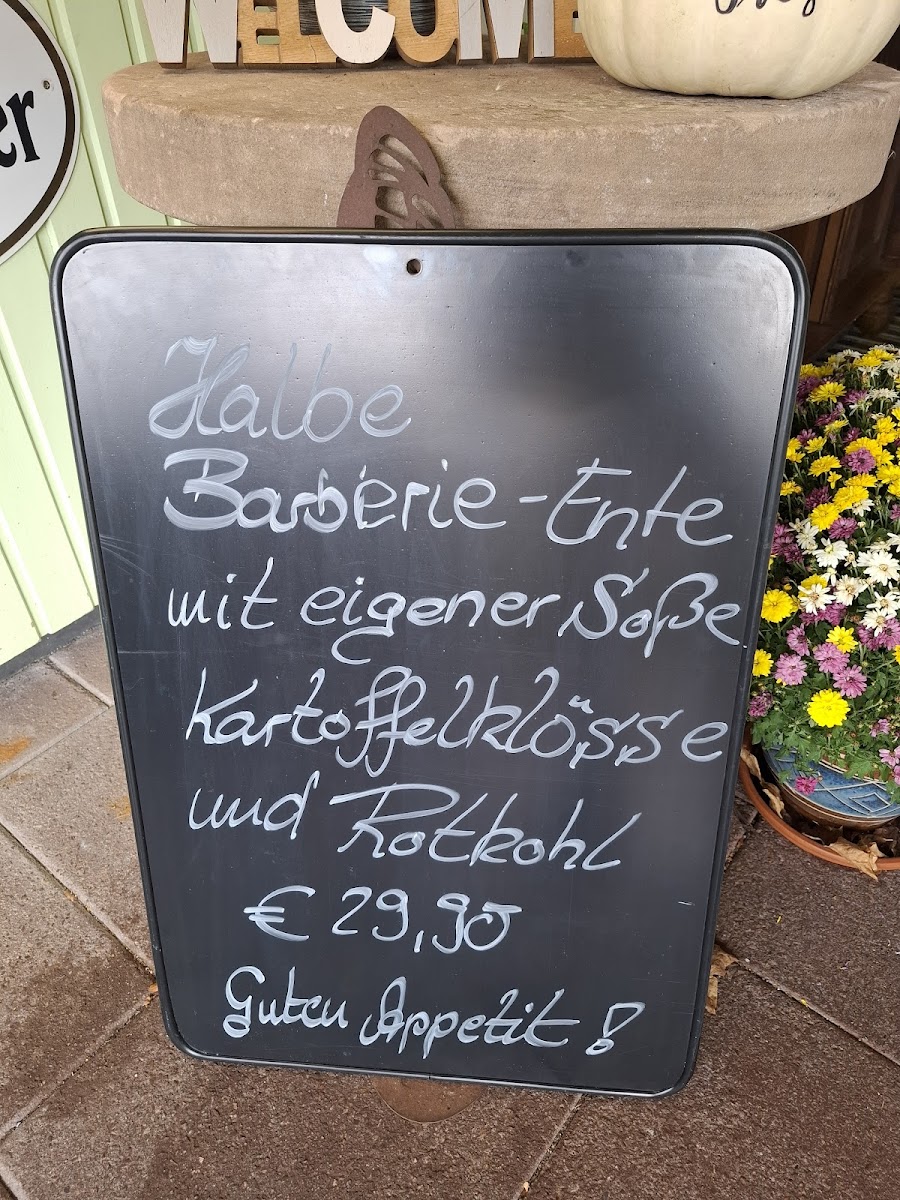 WELCOME
er
Halbe
Barberie-Ente
mit eigener Soße
Kartoffelklösse
und Rotkohl
€ 29,90
Guten Appetit!